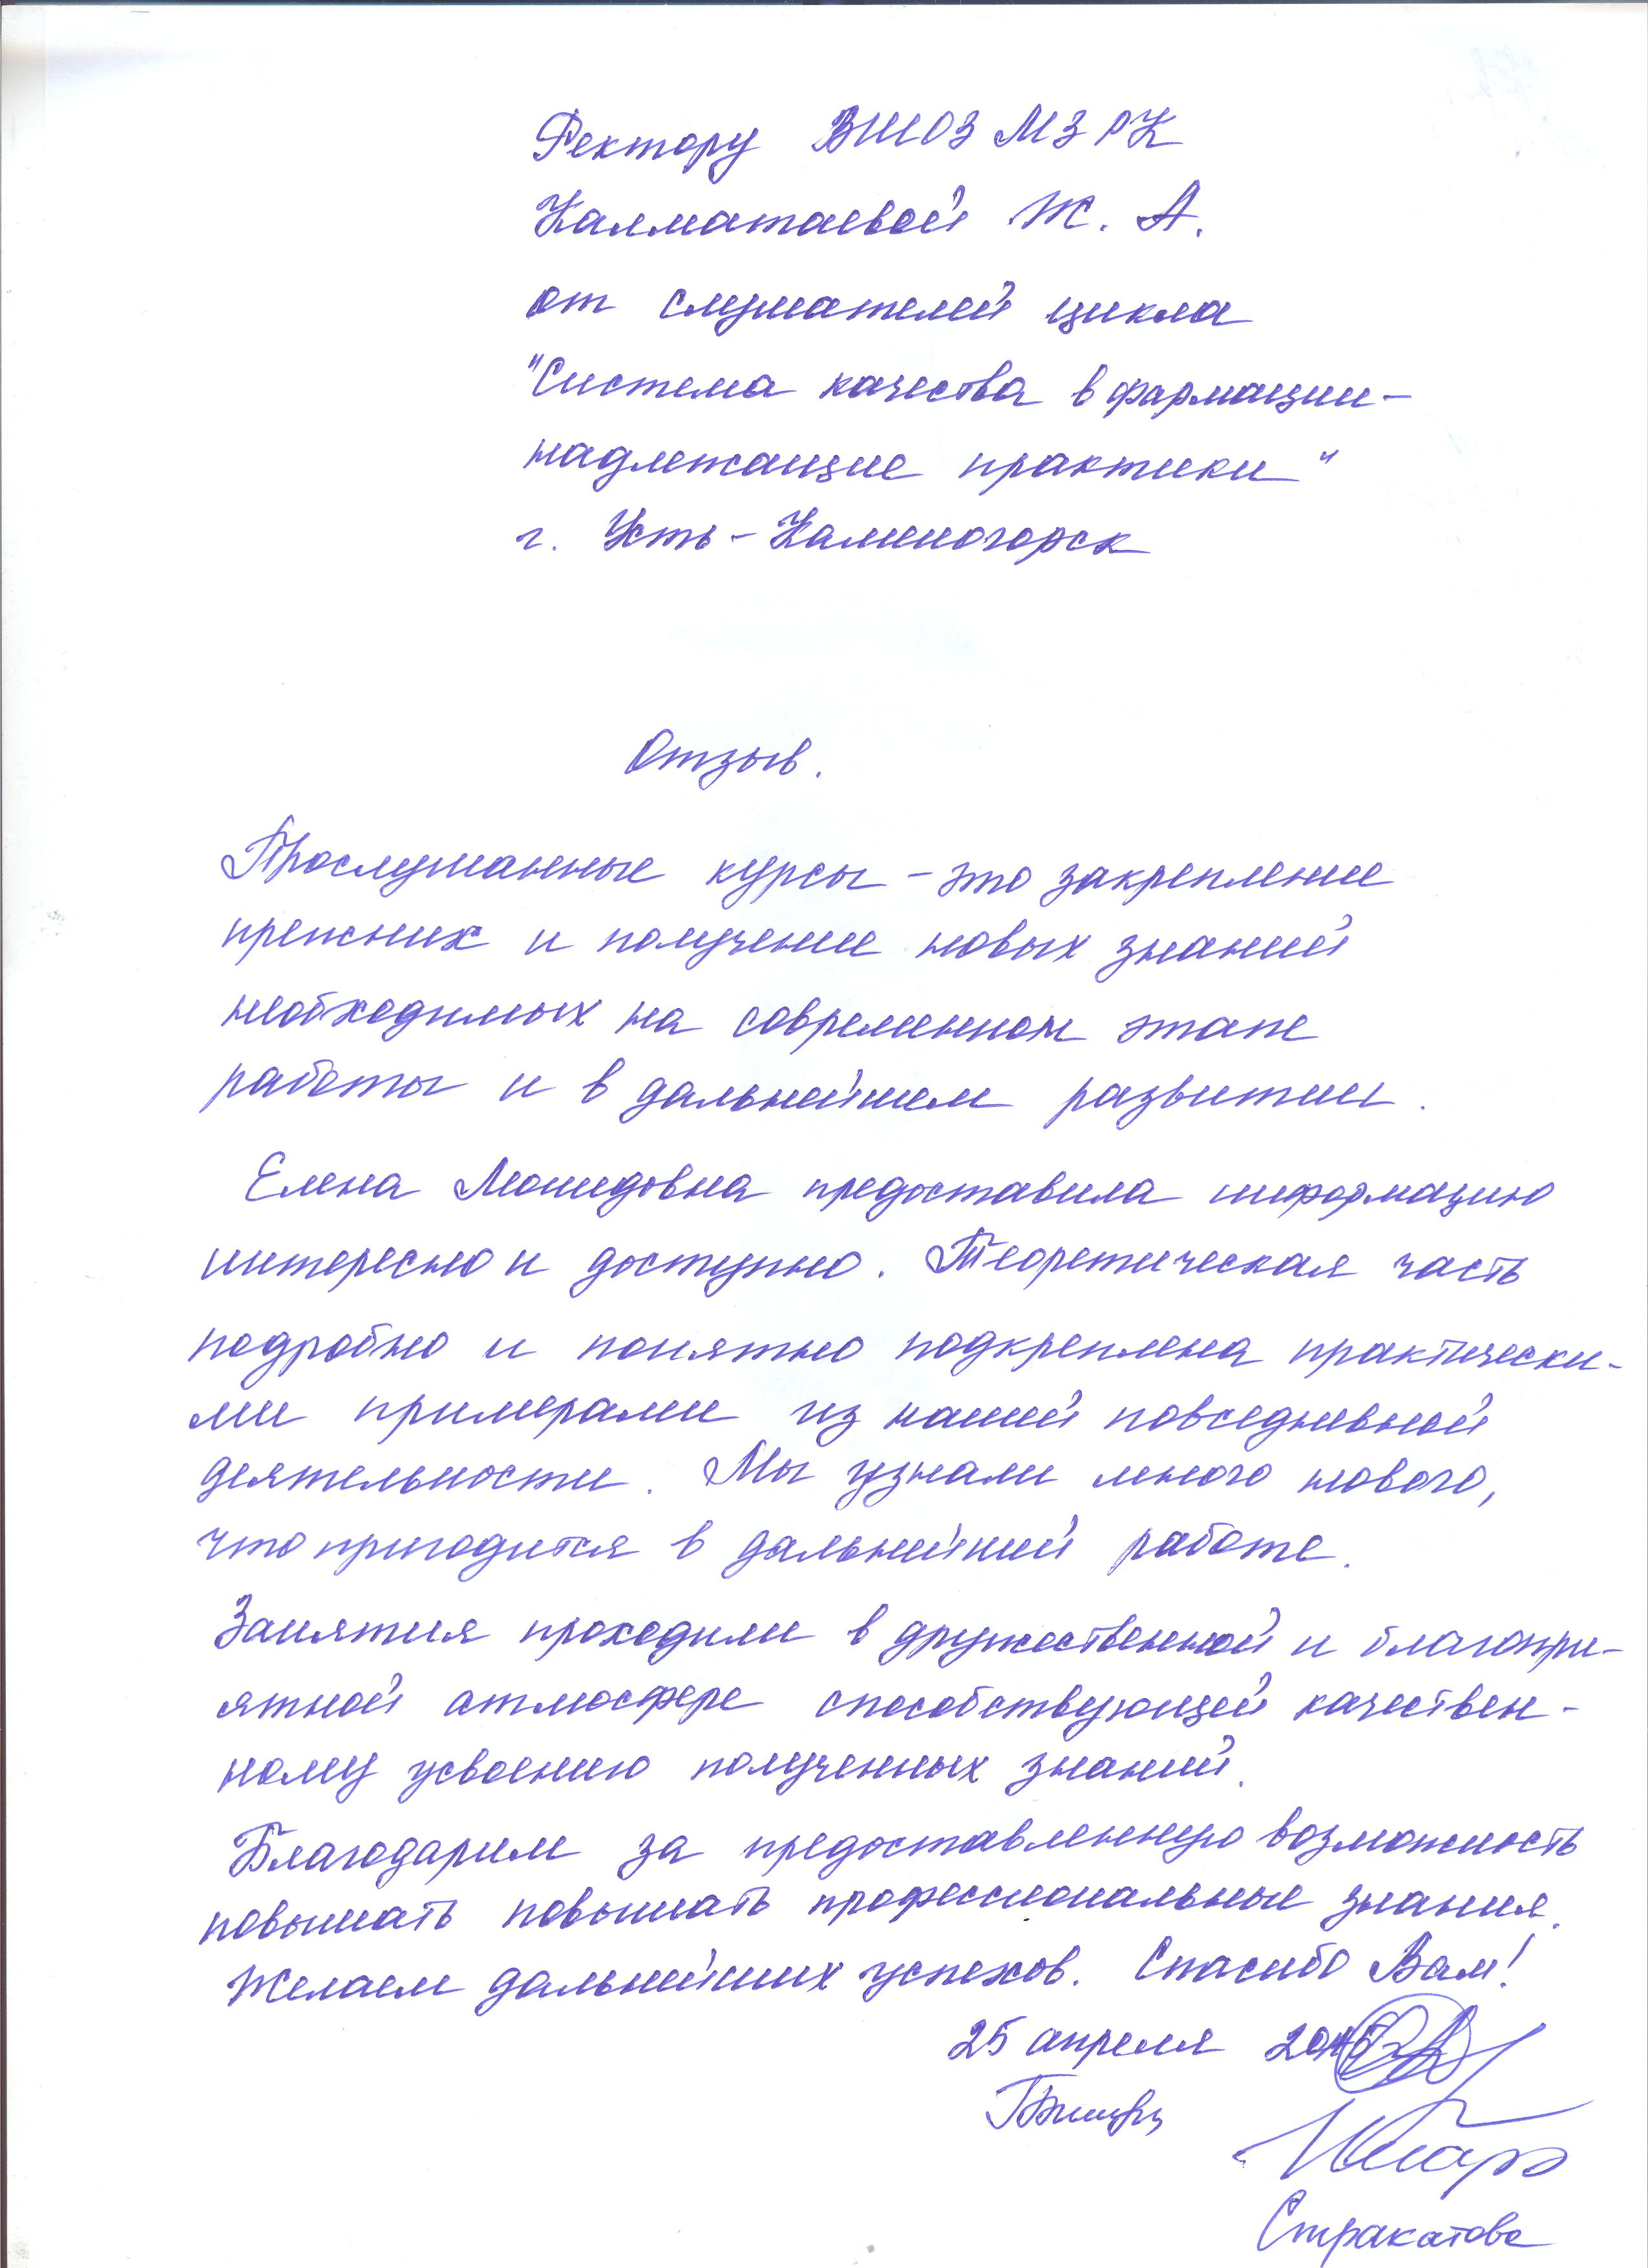 Ректору ВШОЗ МЗ РК
Калматаевой Ж. А.
от слушателей цикла
"Система качества в фармации-
надлежащие практики"
г. Усть-Каменогорск
Отзыв.
Прослушанные курсы - это закрепление
прежних и получение новых знаний
необходимых на современном этапе
работы и в дальнейшем развитии.
Елена Леонидовна предоставила информацию
интересно и доступно. Теоретическая часть
подробно и понятно подкреплена практически-
ми примерами из нашей повседневной
деятельности. Мы узнали много нового,
что пригодится в дальнейшей работе.
Занятия проходили в дружественной и благопри-
ятной атмосфере способствующей качествен-
ному усвоению полученных знаний.
Благодарим за предоставленную возможность
повышать повышать профессиональные знания.
Желаем дальнейших успехов. Спасибо Вам!
25 апреля
Стракатова